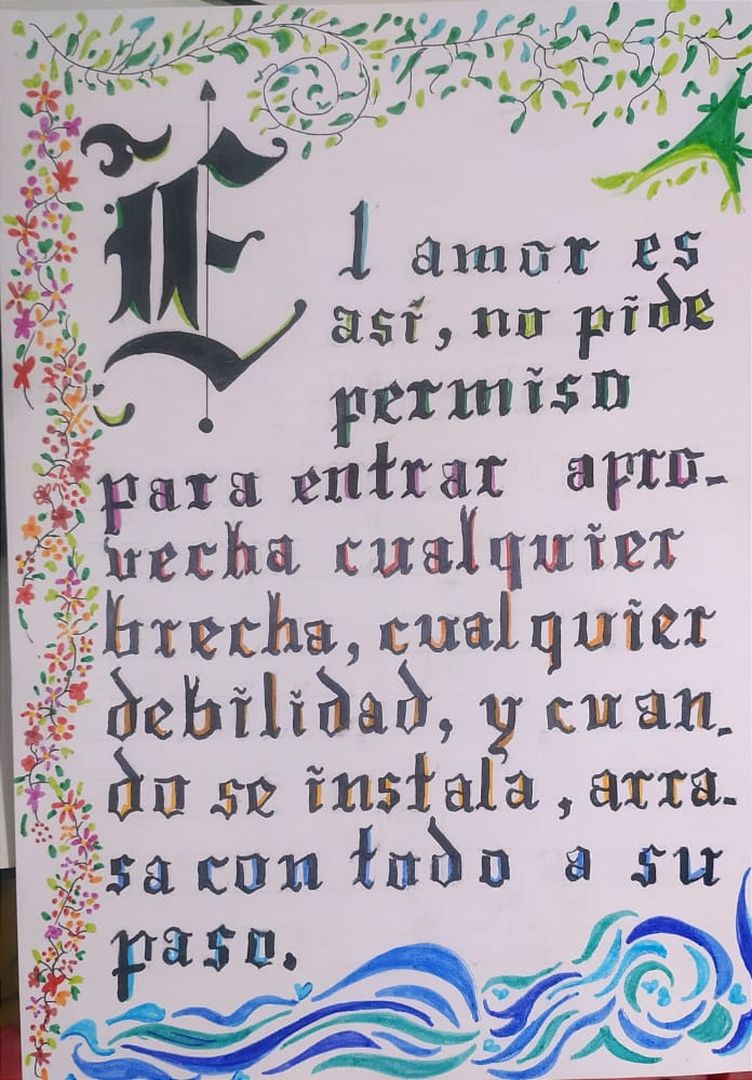 El amor es
así, no pide
permiso
para entrar apro-
vecha cualquier
brecha, cualquier
debilidad, y cuan-
do se instala, arra-
sa con todo a su
paso.